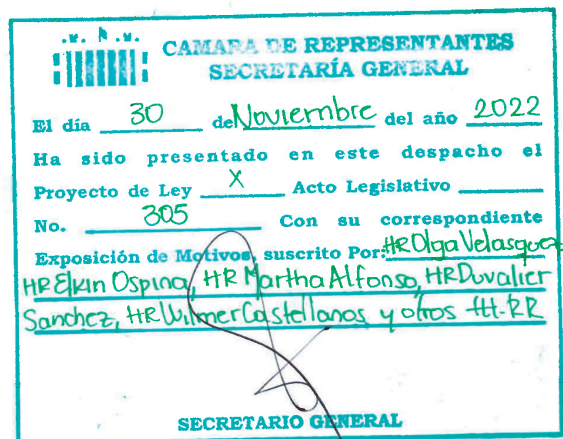 CAMARA DE REPRESENTANTES
SECRETARÍA GENERAL
El día 30 de Noviembre del año 2022
Ha sido presentado en este despacho el
Proyecto de Ley X Acto Legislativo
No. 305 Con su correspondiente
Exposición de Motivos, suscrito Por: HR Olga Velasquez
HR Elkin Ospina, HR Martha Alfonso, HR Duvalier
Sanchez, HR Wilmer Castellanos y otros HH-RR
SECRETARIO GENERAL